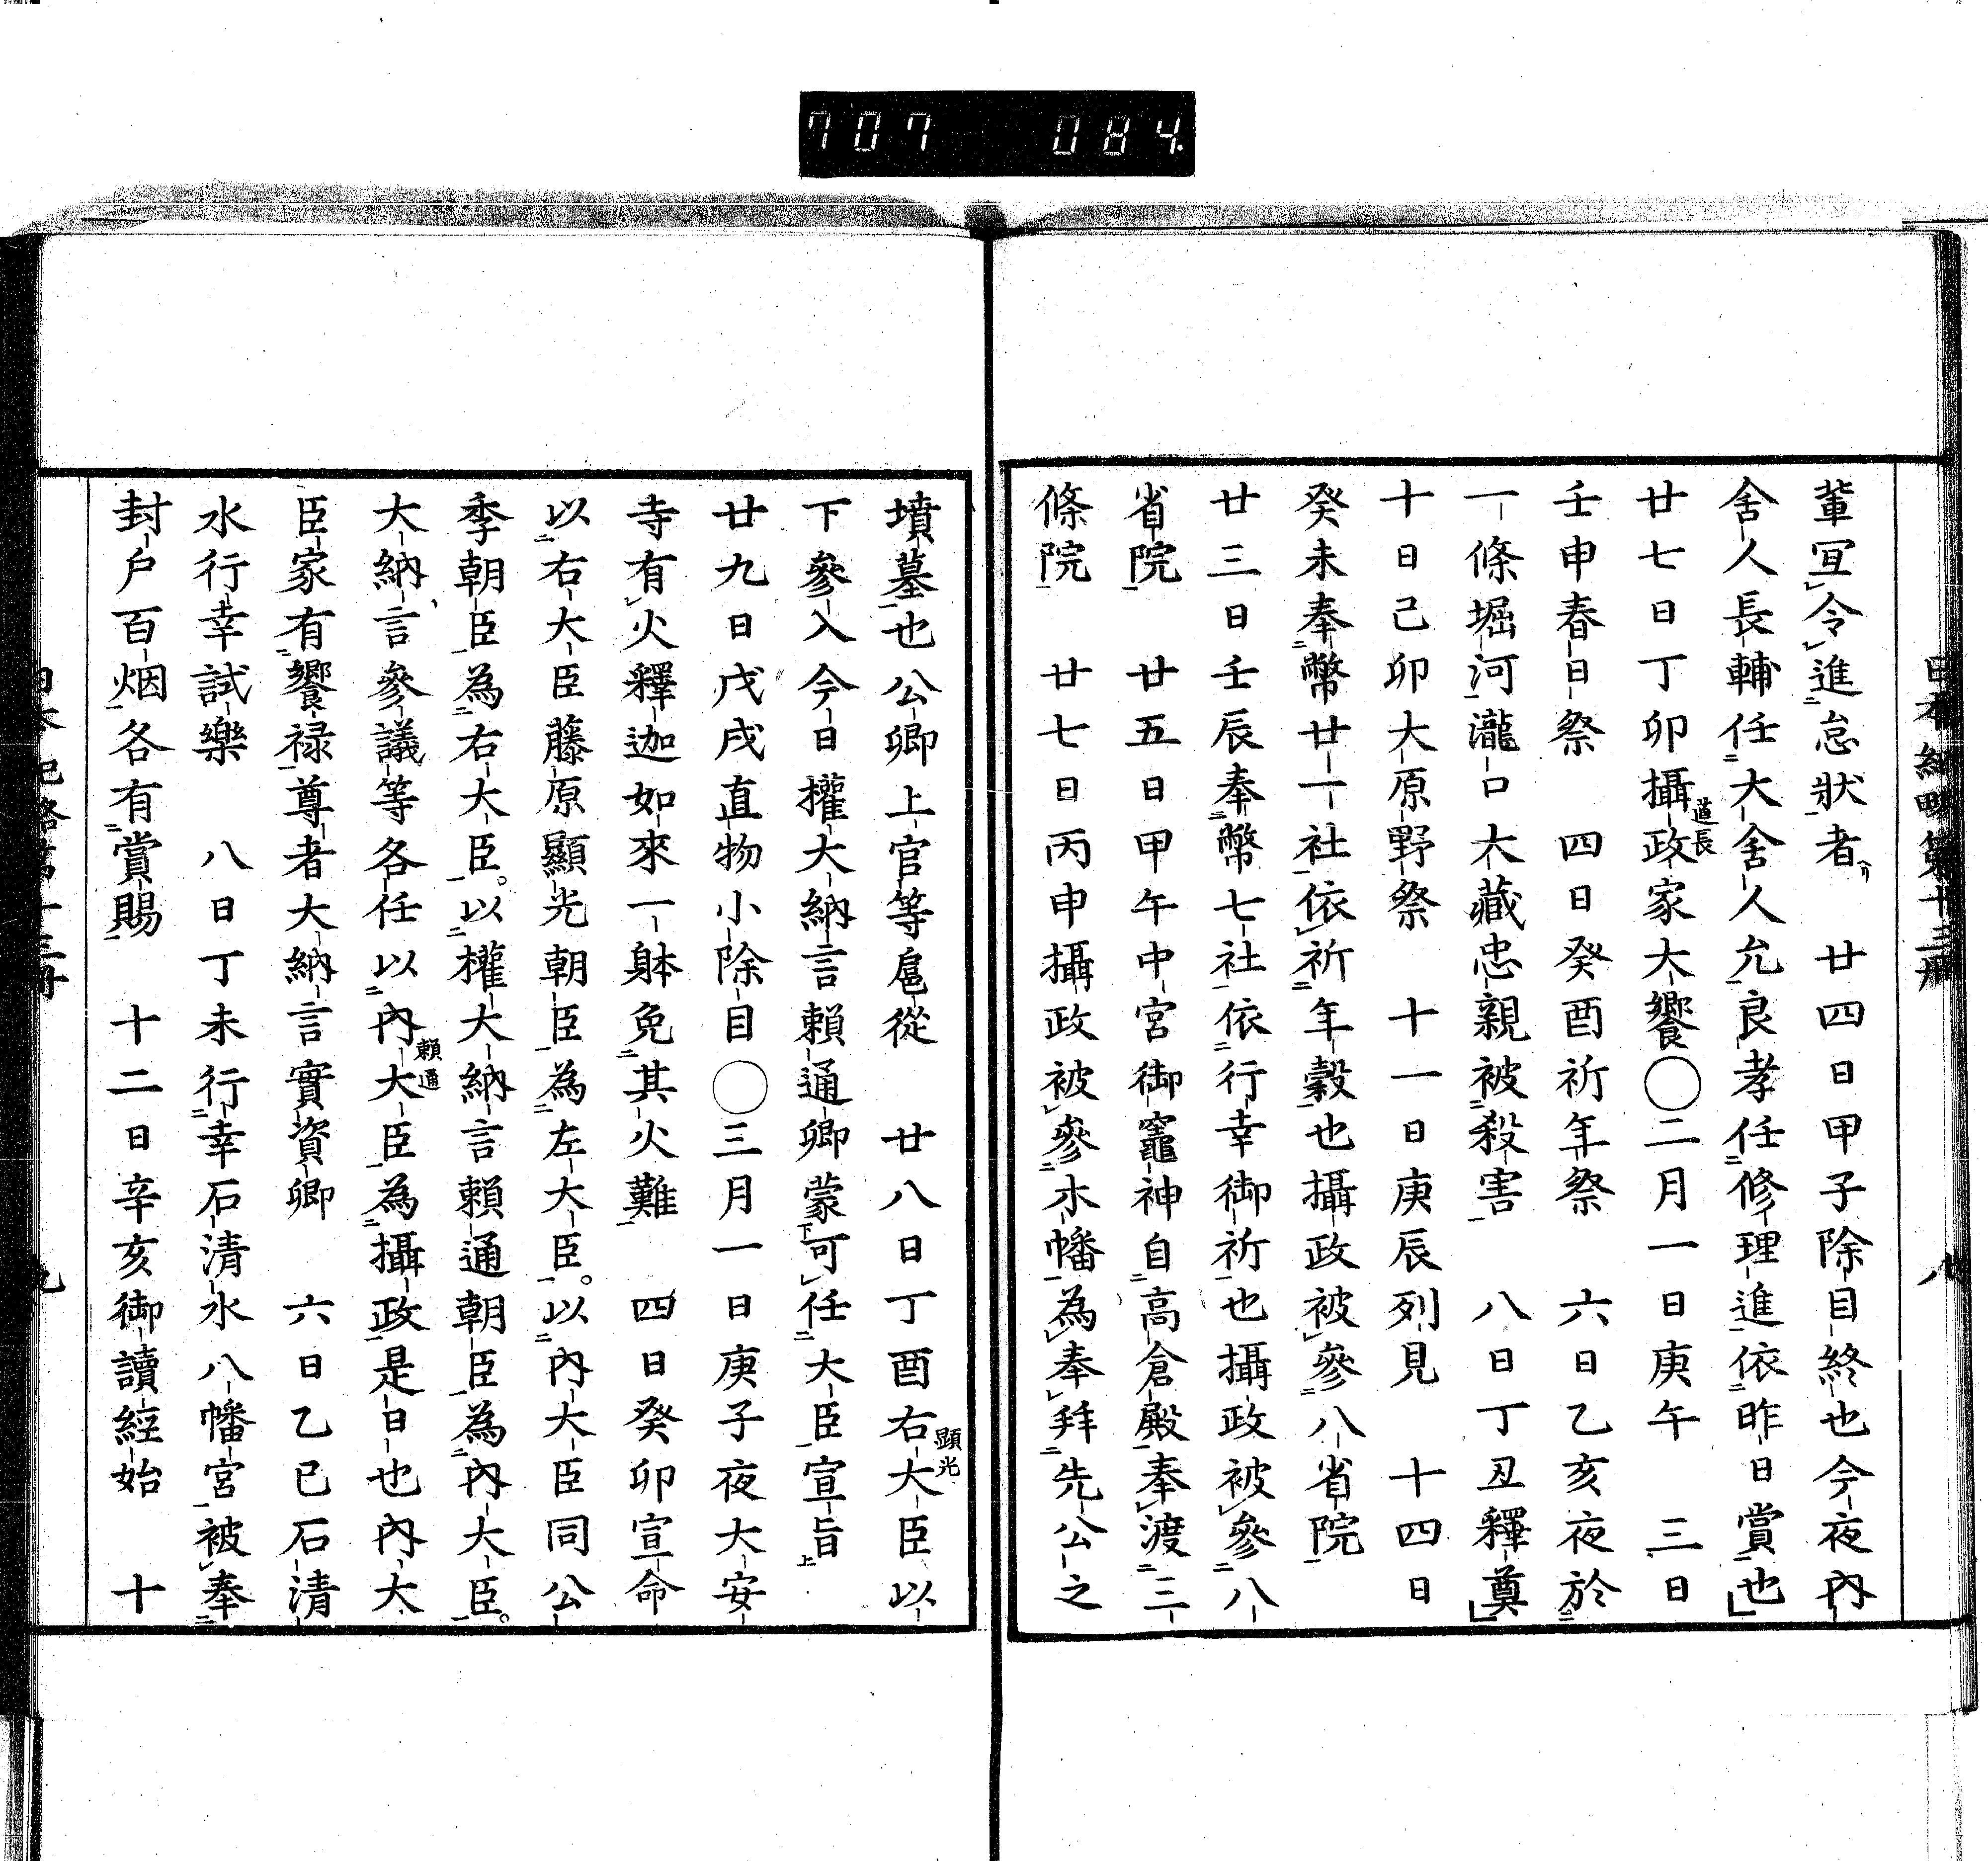 707 084
日本紀略第十三册 八
輩冝令進怠狀者 廿四日甲子除目終也今夜內
舍人長輔任大舍人允良孝任修理進依昨日賞也
廿七日丁卯攝政道長家大饗〇二月一日庚午 三日
壬申春日祭 四日癸酉祈年祭 六日乙亥夜於
一條堀河瀧口大藏忠親被殺害 八日丁丑釋奠
十日己卯大原野祭 十一日庚辰列見 十四日
癸未奉幣廿一社依祈年穀也攝政被參八省院
廿三日壬辰奉幣七社依行幸御祈也攝政被參八
省院 廿五日甲午中宮御竈神自高倉殿奉渡三
條院 廿七日丙申攝政被參木幡為奉拜先公之
墳墓也公卿上官等扈從 廿八日丁酉右大臣顯光以
下參入今日權大納言賴通卿蒙可任大臣宣旨
廿九日戊戌直物小除目〇三月一日庚子夜大安
寺有火釋迦如來一躰免其火難 四日癸卯宣命
以右大臣藤原顯光朝臣為左大臣。以內大臣同公
季朝臣為右大臣。以權大納言賴通朝臣為內大臣。
大納言參議等各任以內大臣賴通為攝政是日也內大
臣家有饗祿尊者大納言實資卿 六日乙巳石清
水行幸試樂 八日丁未行幸石清水八幡宮被奉
封戶百烟各有賞賜 十二日辛亥御讀經始 十
日本紀略第十三册 九